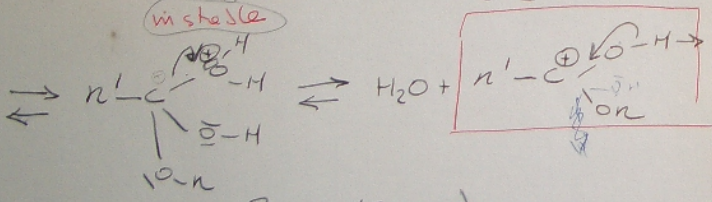 instable
⊕ H
R' – C O – H
Ō – H
|O – R
⇌ H₂O + R' – C ⊕ O – H →
OR